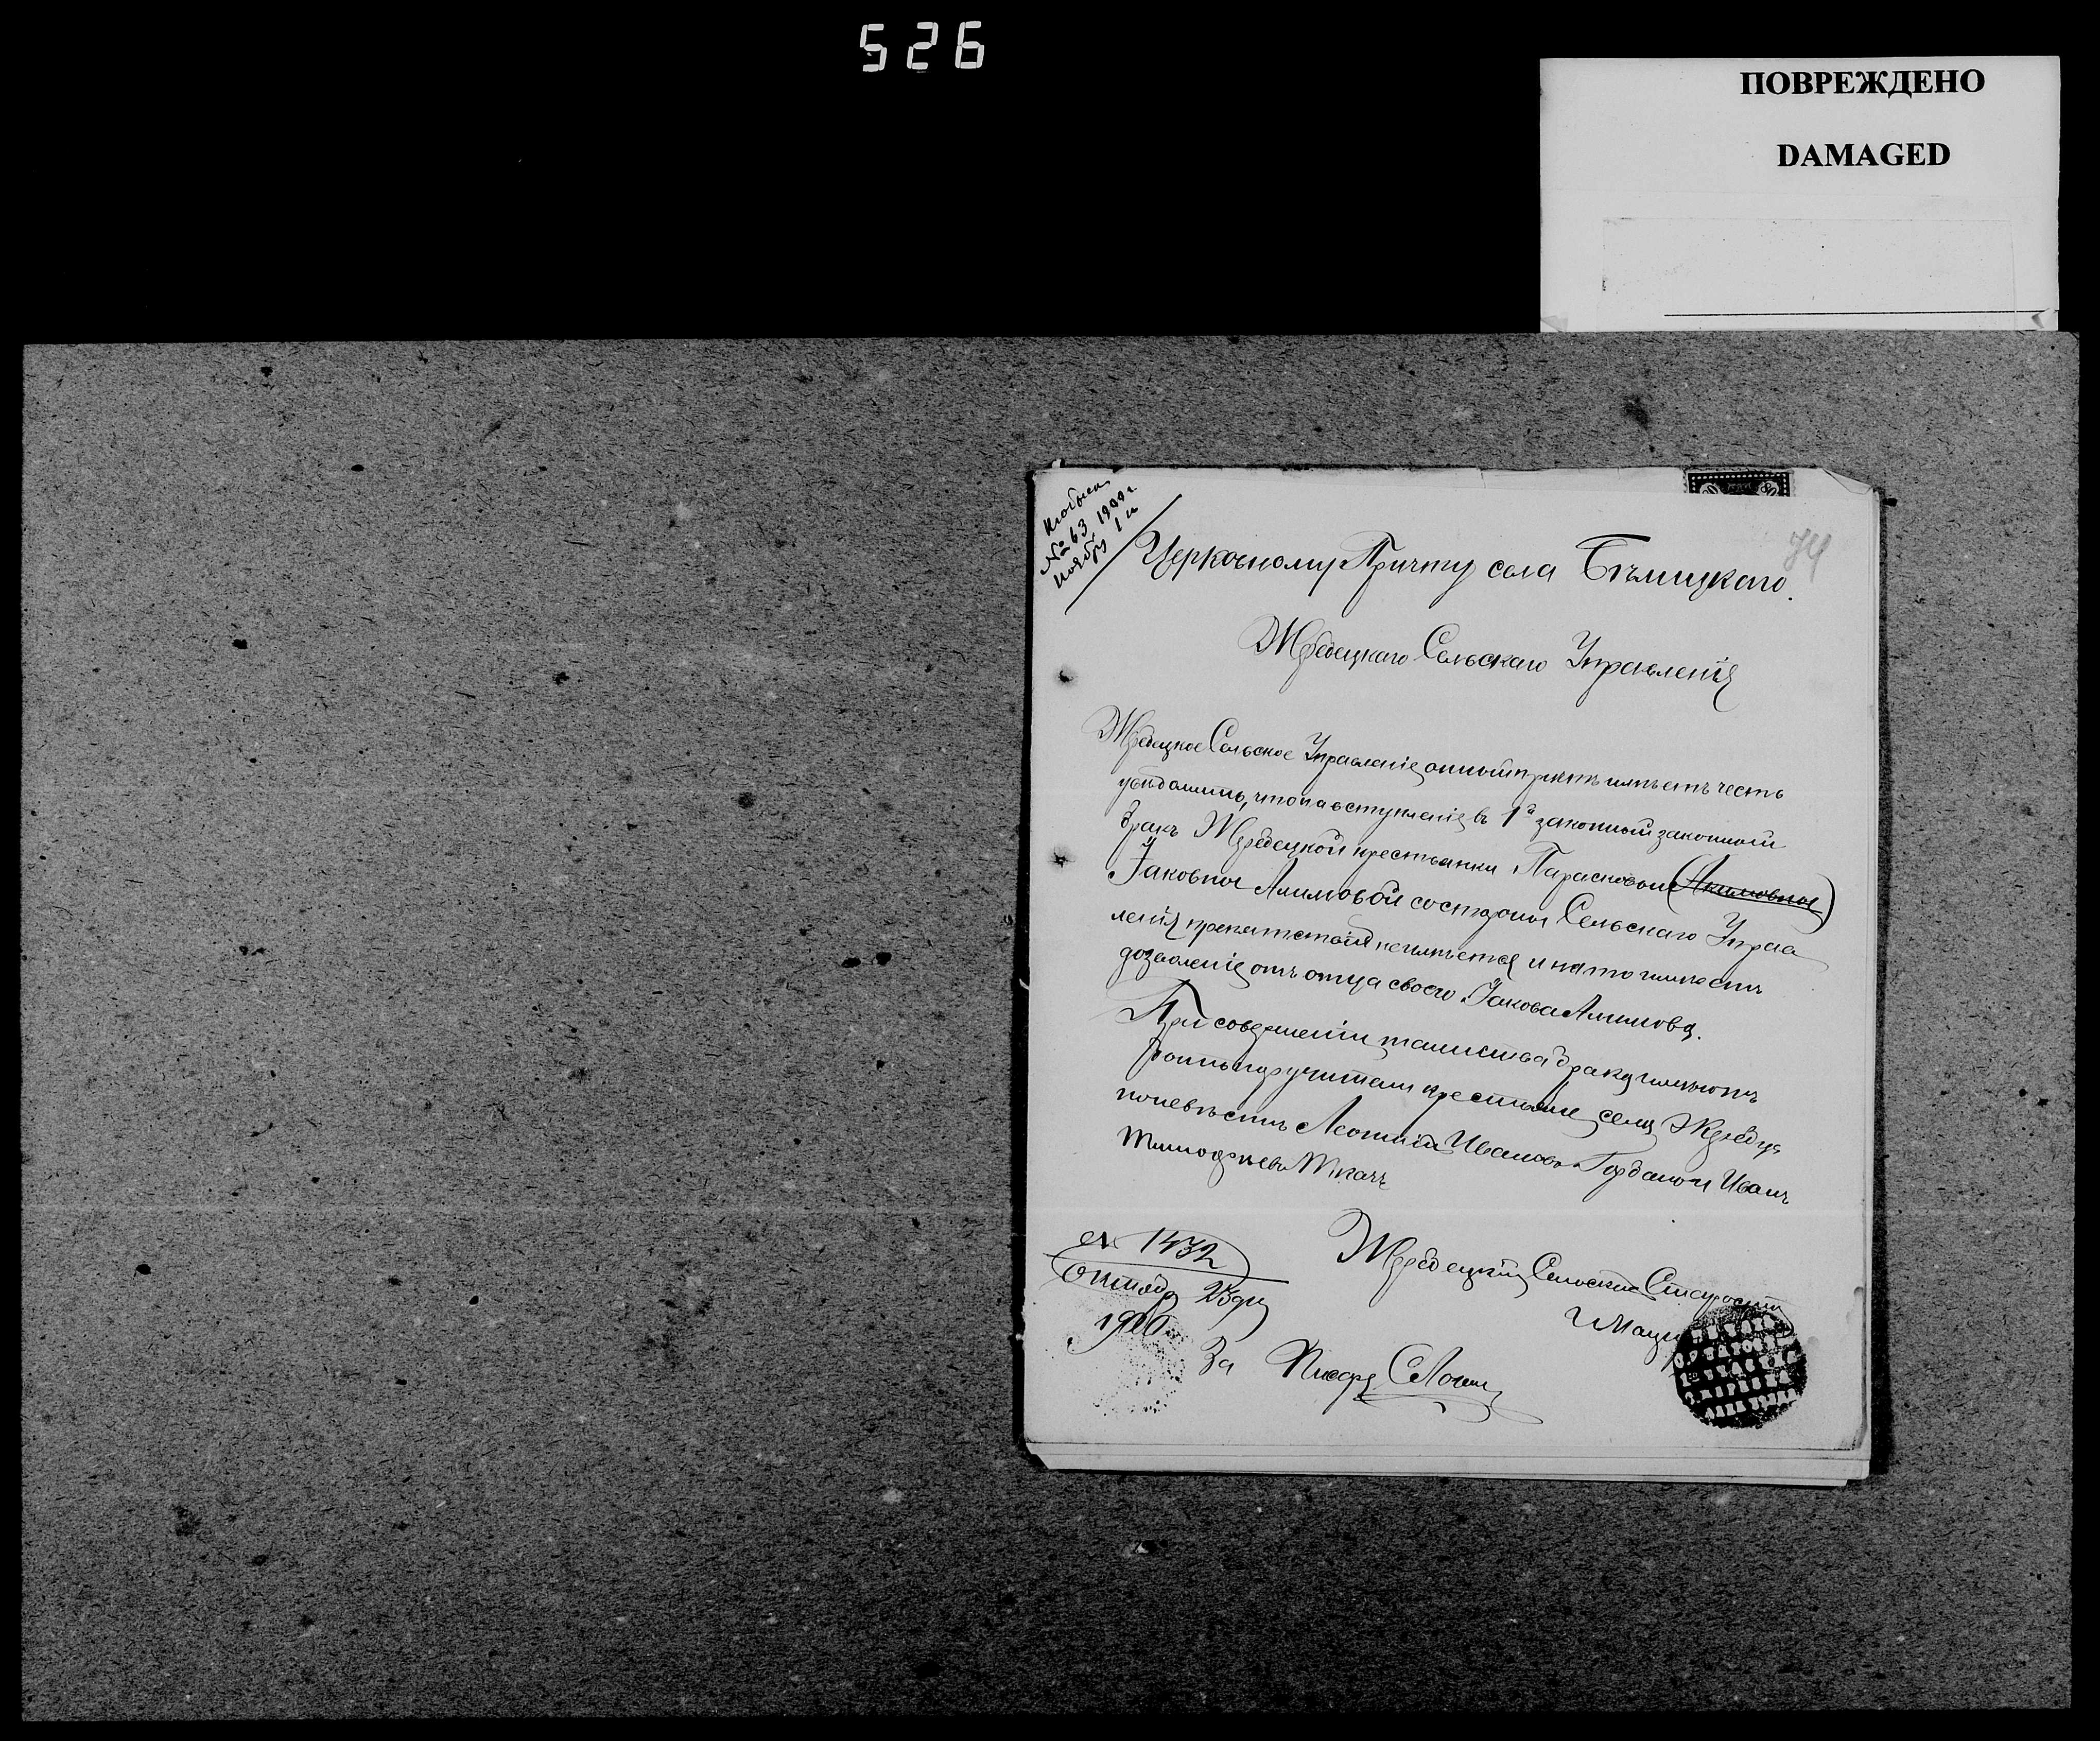 526
ПОВРЕЖДЕНО
DAMAGED
№ 63. 1900 г.
Ноября 1 д
74
Церковному Причту села Бѣлицкаго.
Жребецкаго Сельскаго Управленія
Жребецкое Сельское Управленіе оный причтъ имѣетъ честь
увѣдомить, что на вступленіе въ 1й законный законный
бракъ Жеребецкой крестьянки Парасковои (Акимовной)
Іаковной Алимовой со стороны Сельскаго Управ
ленія препятствія не имѣется и на то имѣетъ
дозволеніе отъ отца своего Іакова Алимова.
При совершеніи таинства брака имѣютъ
быть поручители крестьяне села Жеребца
по невѣстѣ Леонтій Ивановъ Горбань и Иванъ
Тимофѣевъ Ткачъ
№ 1432
Октябр 23 дня
1900
Жеребецкій Сельскій Староста
За Писаря